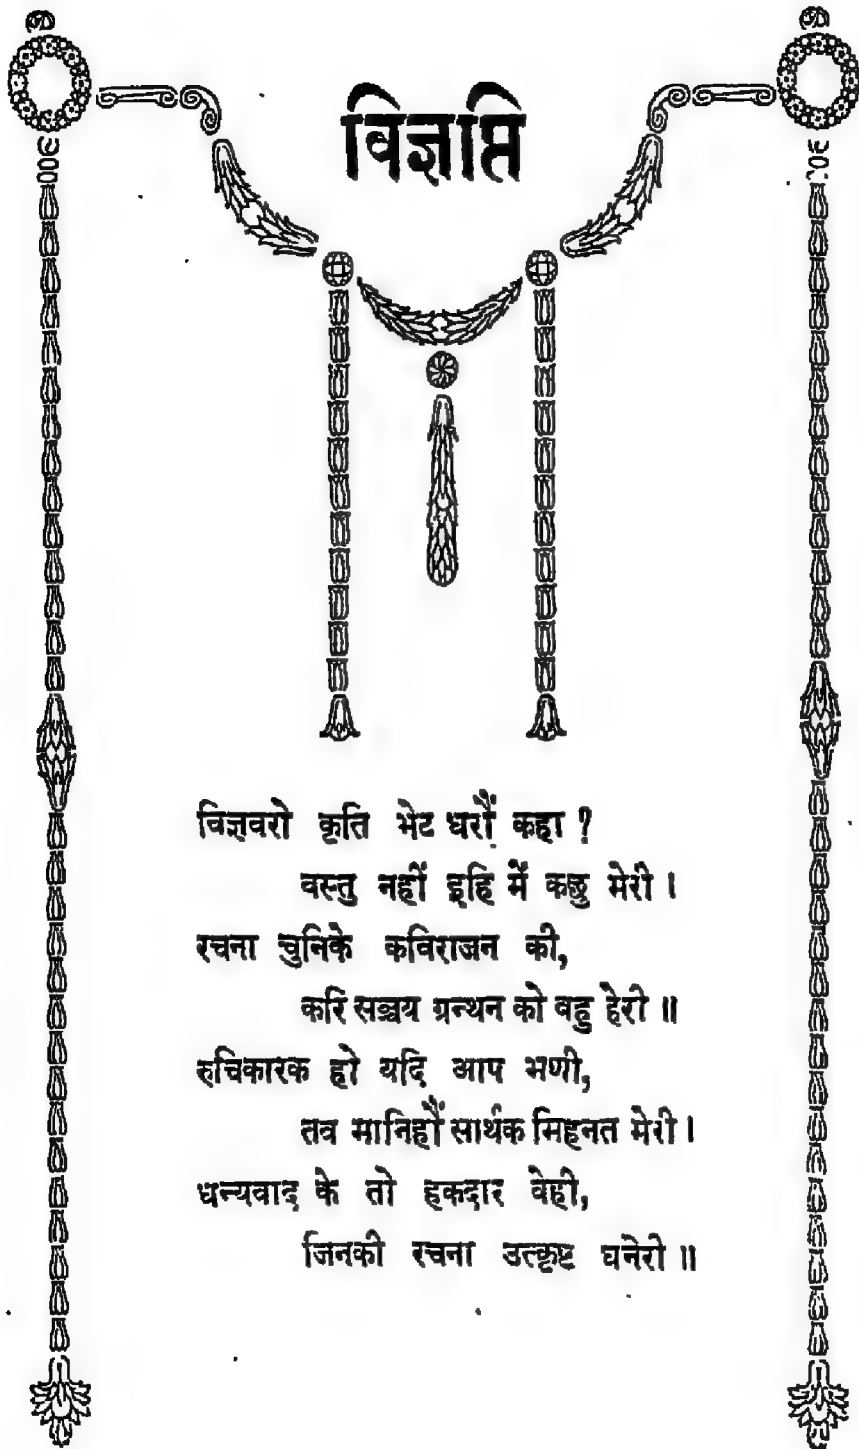 विज्ञप्ति
विज्ञवरो कृति भेट धरौं कहा ?
वस्तु नहीं इहि में कछु मेरी ।
रचना चुनिके कविराजन की,
करि सञ्चय ग्रन्थन को वहु हेरी ॥
रुचिकारक हो यदि आप भणी,
तव मानिहौं सार्थक मिहनत मेरी ।
धन्यवाद के तो हकदार वेही,
जिनकी रचना उत्कृष्ट घनेरी ॥